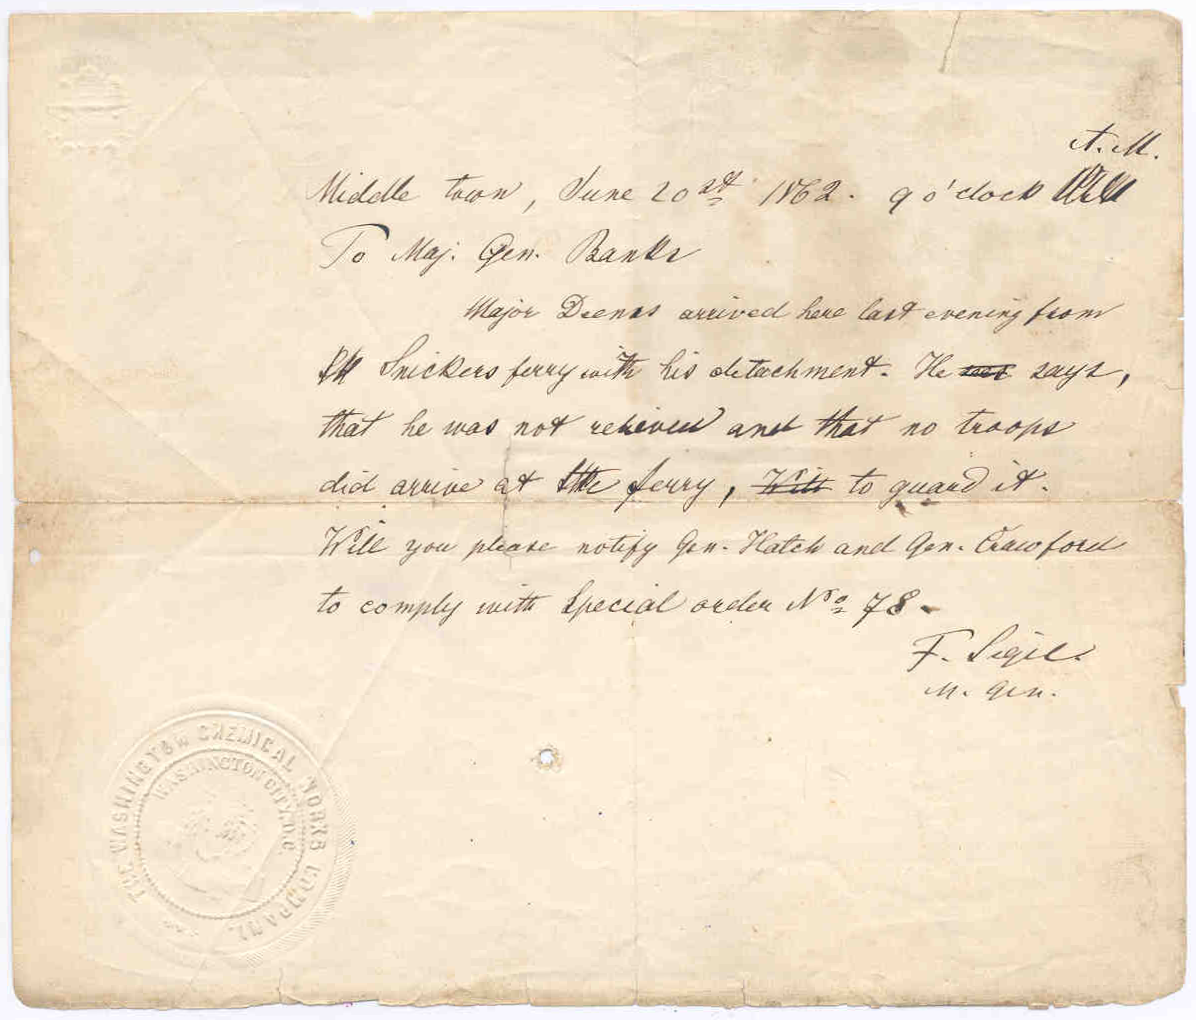 A.M.
Middle town, June 20st 1862. 9 o'clock
To Maj. Gen. Banks
Major Deenas arrived here last evening from
Snickers ferry with his detachment. He says,
that he was not relieved and that no troops
did arrive at the ferry, Will to guard it.
Will you please notify Gen. Hatch and Gen. Crawford
to comply with Special order No 78.
F. Sigel.
M. Gen.
THE WASHINGTON CHEMICAL WORKS COMPANY
WASHINGTON CITY, D.C.